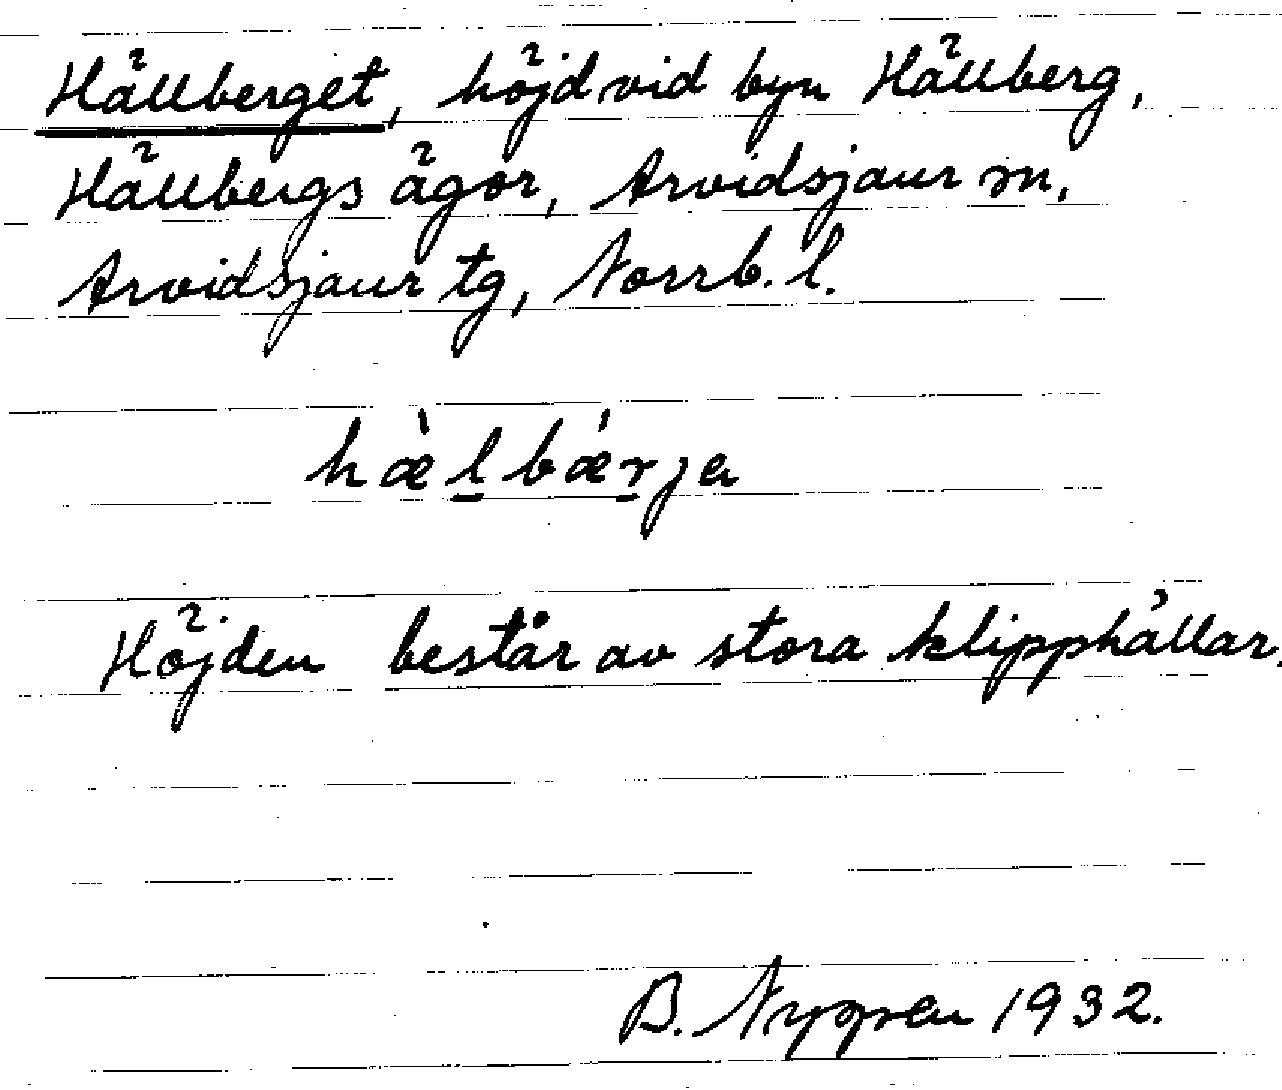 Hällberget, höjd vid byn Hällberg,
Hällbergs ägor, Arvidsjaur sn,
Arvidsjaur tg, Norrb. l.
hæ̀l̠bǽr̠ja
Höjden består av stora klipphällar.
B. Nygren 1932.